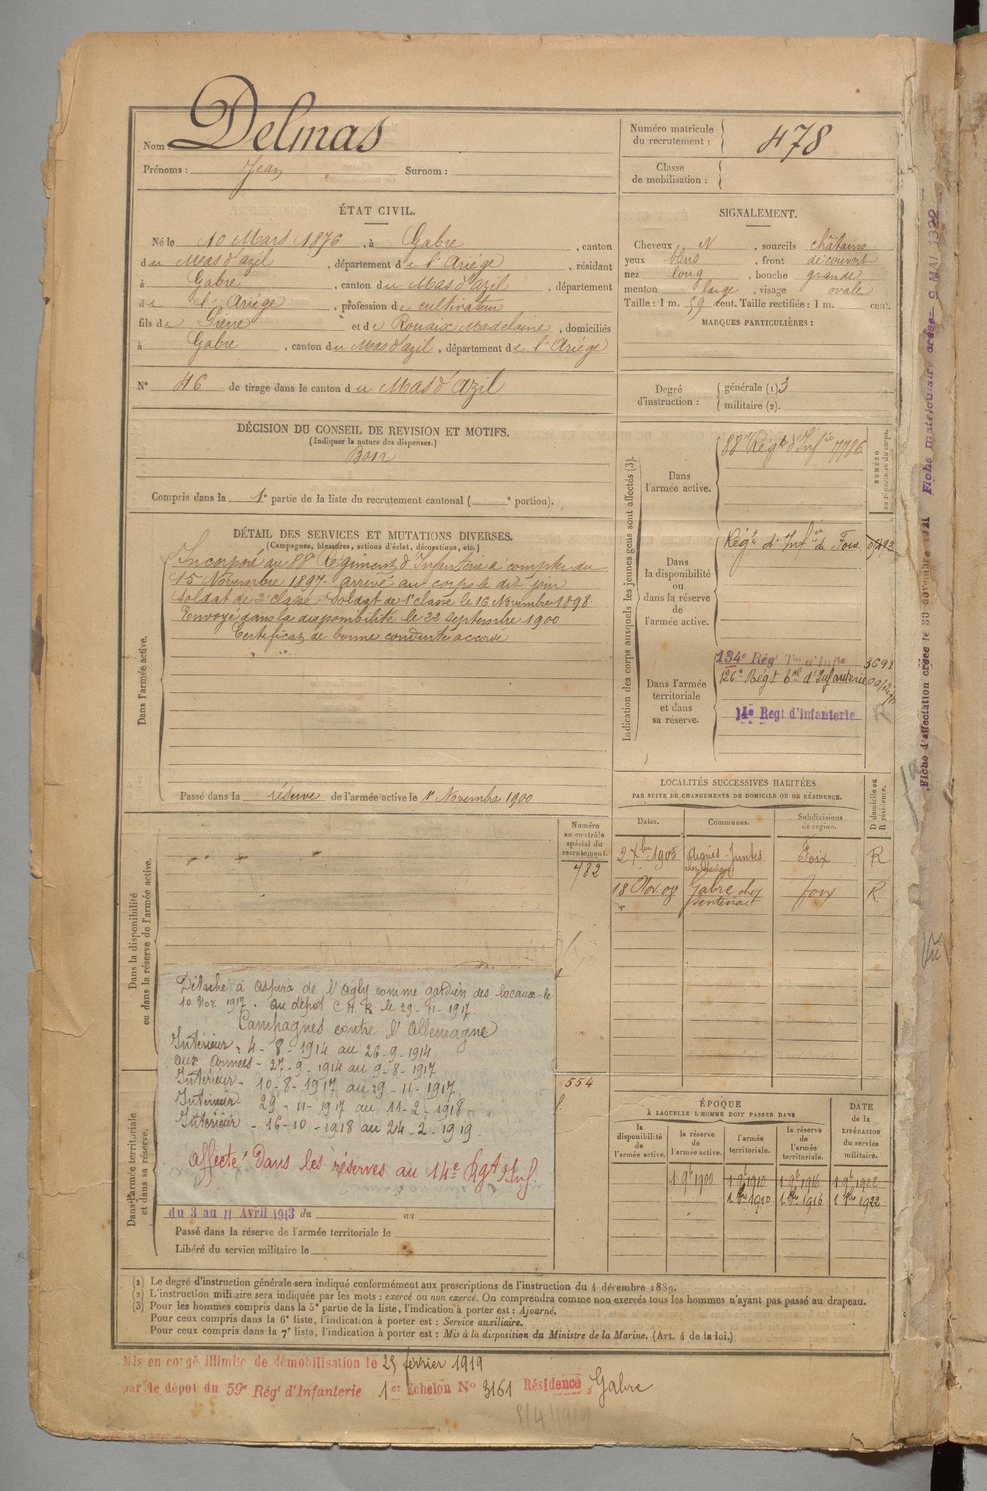 Nom : Delmas
Prénoms : Jean Surnom :
Numéro matricule du recrutement : 478
Classe de mobilisation :
ÉTAT CIVIL.
Né le 10 Mars 1876, à Gabre, canton
du Mas d'azil, département de l'Ariége, résidant
à Gabre, canton du Mas d'azil, département
de l'Ariége, profession de cultivateur
fils de Pierre et de Rouaix Madelaine, domiciliés
à Gabre, canton du Mas d'azil, département de l'Ariége
N° 46 de tirage dans le canton du Mas d'Azil
SIGNALEMENT.
Cheveux N, sourcils châtains
yeux bleus, front découvert
nez long, bouche grande
menton large, visage ovale
Taille : 1 m. 59 cent. Taille rectifiée : 1 m. cent.
MARQUES PARTICULIÈRES :
Degré d'instruction : générale (1) 3
militaire (2).
DÉCISION DU CONSEIL DE REVISION ET MOTIFS.
(Indiquer la nature des dispenses.)
Bon
Compris dans la 1e partie de la liste du recrutement cantonal ( e portion).
DÉTAIL DES SERVICES ET MUTATIONS DIVERSES.
(Campagnes, blessures, actions d'éclat, décorations, etc.)
Dans l'armée active.
Incorporé au 88e Régiment d'Infanterie à compter du
15 Novembre 1897. arrivé au corps le dit jour
Soldat de 2e classe. Soldat de 1e classe le 16 Novembre 1898
Envoyé dans la disponibilité le 22 septembre 1900
Certificat de bonne conduite accordé
Passé dans la réserve de l'armée active le 1r Novembre 1900
Indication des corps auxquels les jeunes gens sont affectés (3).
NUMÉRO au répertoire du corps.
Dans l'armée active.
88e Régt d'Infie 7786
Dans la disponibilité ou dans la réserve de l'armée active.
Régt d'Infie de Foix
Dans l'armée territoriale et dans sa réserve.
134e Rég
126e Régt tal d'Infanterie
14e Regt d'Infanterie
LOCALITÉS SUCCESSIVES HABITÉES
PAR SUITE DE CHANGEMENTS DE DOMICILE OU DE RÉSIDENCE.
Dates. Communes. Subdivisions de région. D domicile ou R résidence.
2 Xbre 1905 Aigues-Juntes Foix R
18 Nov 08 Gabre Foix R
Dans la disponibilité ou dans la réserve de l'armée active.
Numéro au contrôle spécial du recrutement.
782
Détaché à Aspira de l'Agly comme gardien des locaux le
10 Nov. 1917. au dépôt C A R le 29-11-1917.
Campagnes contre l'Allemagne
Intérieur - 4-8-1914 au 26-9-1914
aux armées - 27-9-1914 au 9-8-1917
Intérieur - 10-8-1917 au 29-11-1917
Intérieur - 29-11-1917 au 11-2-1918
Intérieur - 16-10-1918 au 24-2-1919.
affecté dans les réserves au 14e Rgt d'Inf.
554
Dans l'armée territoriale et dans sa réserve.
du 3 au 11 Avril 1913 du au
Passé dans la réserve de l'armée territoriale le
Libéré du service militaire le
ÉPOQUE
À LAQUELLE L'HOMME DOIT PASSER DANS
la disponibilité de l'armée active.
la réserve de l'armée active.
l'armée territoriale.
la réserve de l'armée territoriale.
DATE de la LIBÉRATION du service militaire.
1 9bre 1900 1 9bre 1910 1 9bre 1916 1 9bre 1922
1910 1916 1922
(1) Le degré d'instruction générale sera indiqué conformément aux prescriptions de l'instruction du 4 décembre 1889.
(2) L'instruction militaire sera indiquée par les mots : exercé ou non exercé. On comprendra comme non exercés tous les hommes n'ayant pas passé au drapeau.
(3) Pour les hommes compris dans la 5e partie de la liste, l'indication à porter est : Ajourné.
Pour ceux compris dans la 6e liste, l'indication à porter est : Service auxiliaire.
Pour ceux compris dans la 7e liste, l'indication à porter est : Mis à la disposition du Ministre de la Marine. (Art. 4 de la loi.)
Mis en congé illimité de démobilisation le 25 février 1919
par le dépôt du 59e Régt d'Infanterie 1er Echelon N° 3161 Résidence, Gabre
8/4/1919
Fiche d'affectation créée le 30 novembre 1921 Fiche matriculaire créée 9 MAI 1922